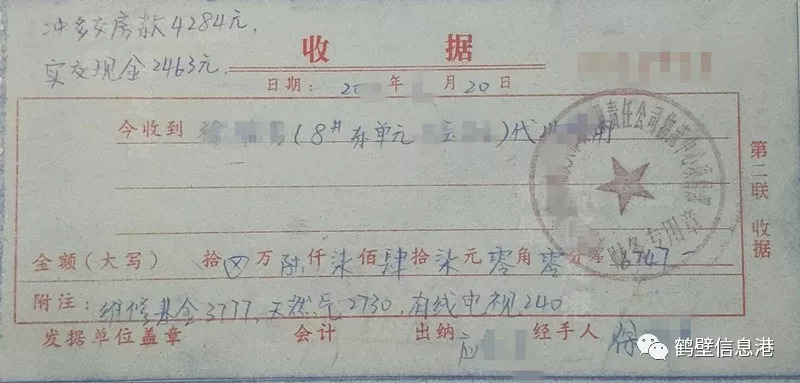 冲多交房款4284元,
实交现金2463元.
收 据
日期: 2 年 月20日
今收到 徐 (8#东单元 )代
责任公司 财务专用章
第二联 收据
金额(大写) 拾 万陆仟柒佰肆拾柒元零角零分 747-
附注: 维修基金3777,天然气2730,有线电视240
发据单位盖章 会计 出纳 经手人
鹤壁信息港